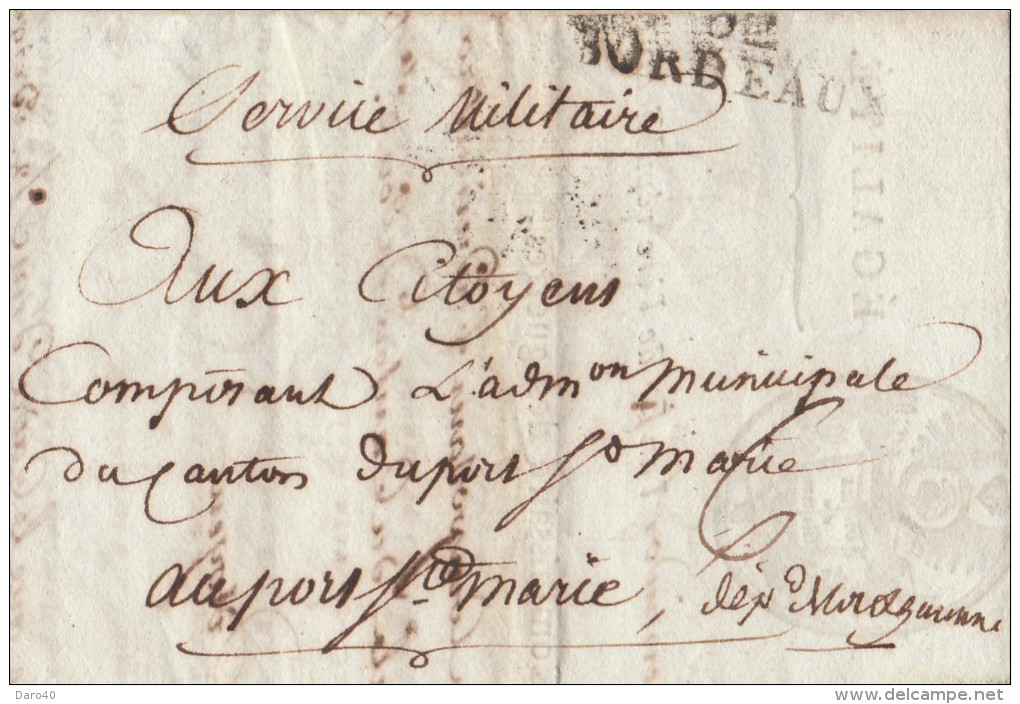 DE
BORDEAUX
Service Militaire
ÉGALITÉ
Aux Citoyens
Composant L'admon Municipale
du Canton du port Ste Marie
au port Ste Marie, dépt
Daro40
delcampe.net